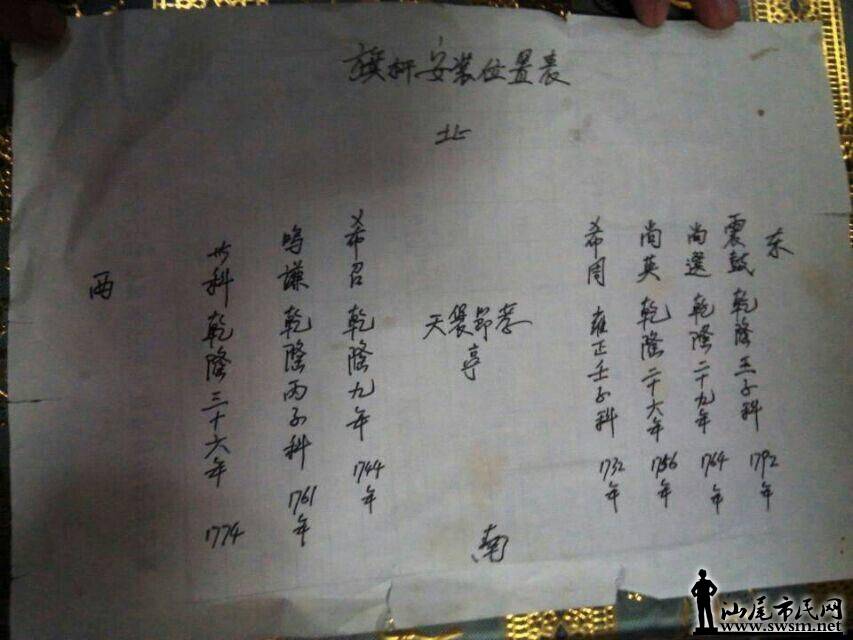 旗杆安装位置表
北
东
震鼓 乾隆壬子科 1792年
尚選 乾隆二十九年 1764年
尚英 乾隆二十六年 1756年
希周 雍正壬子科 1732年
孝节褒天
亭
希召 乾隆九年 1744年
鸣谦 乾隆丙子科 1761年
科 乾隆三十六年 1774
西
南
汕尾市民网
www.swsm.net